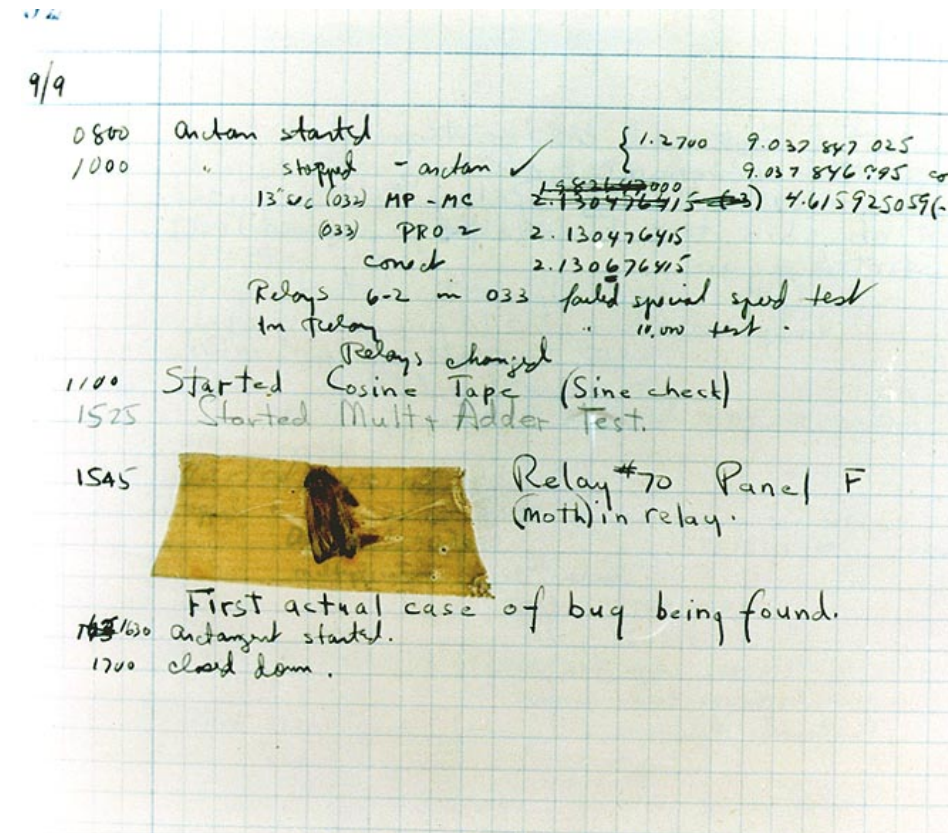 9/9
0800 arctan started { 1.2700 9.037 847 025
1000 " stopped - arctan ✓ 9.037 846 995 co
13"sec (032) MP - MC 2.130476415 (-3) 4.615925059(-
(033) PRO 2 2.130476415
conect 2.130676415
Relays 6-2 in 033 failed special speed test
In Relay " 10,000 test .
Relays changed
1100 Started Cosine Tape (Sine check)
1525 Started Mult+ Adder Test.
1545 Relay #70 Panel F
(moth) in relay.
First actual case of bug being found.
1630 arctangent started.
1700 closed down .